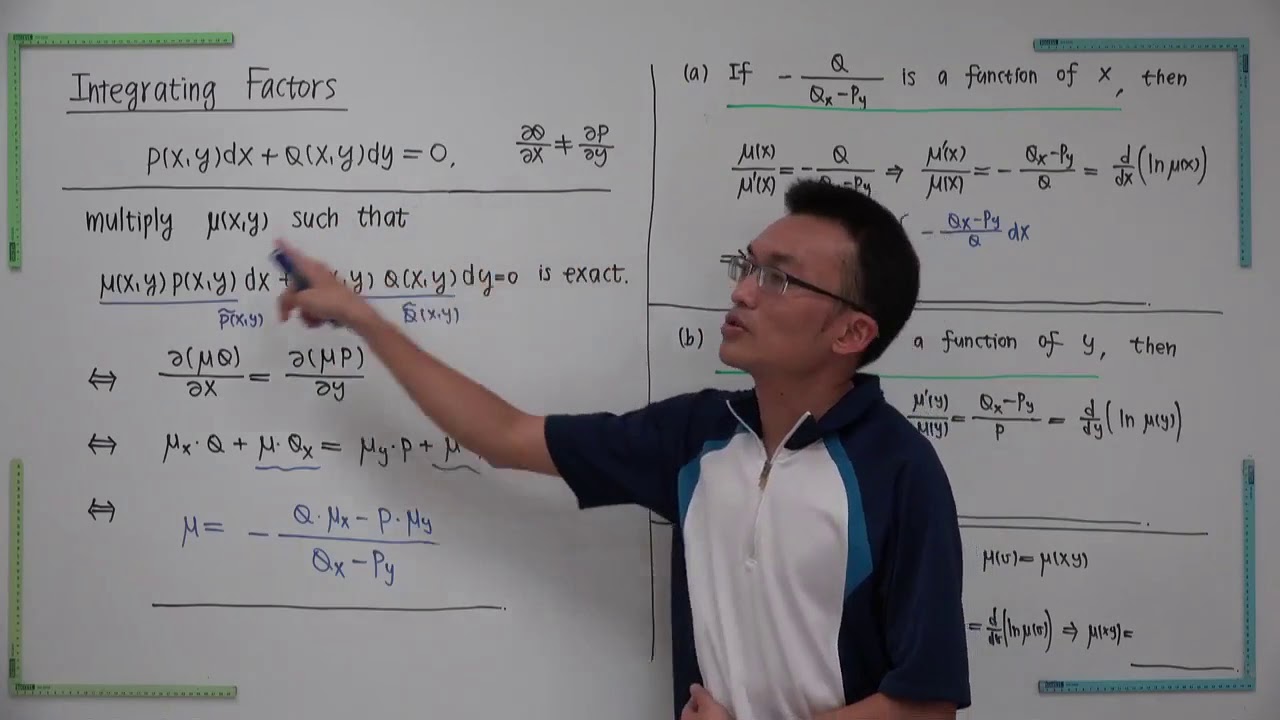 Integrating Factors
P(x,y)dx + Q(x,y)dy = 0, ∂Q/∂x ≠ ∂P/∂y
multiply μ(x,y) such that
μ(x,y) P(x,y) dx + ,y) Q(x,y) dy=0 is exact.
P̃(x,y) Q̃(x,y)
⇔ ∂(μQ)/∂x = ∂(μP)/∂y
⇔ μx·Q + μ·Qx = μy·P + μ
⇔ μ = − (Q·μx − P·μy)/(Qx − Py)
(a) If − Q/(Qx−Py) is a function of x, then
μ(x)/μ'(x) = − Q/(Qx−Py) ⇒ μ'(x)/μ(x) = − (Qx−Py)/Q = d/dx (ln μ(x))
⇒ − (Qx−Py)/Q dx
(b) a function of y, then
μ'(y)/μ(y) = (Qx−Py)/P = d/dy ( ln μ(y))
μ(v) = μ(xy)
= d/dv (ln μ(v)) ⇒ μ(xy)=